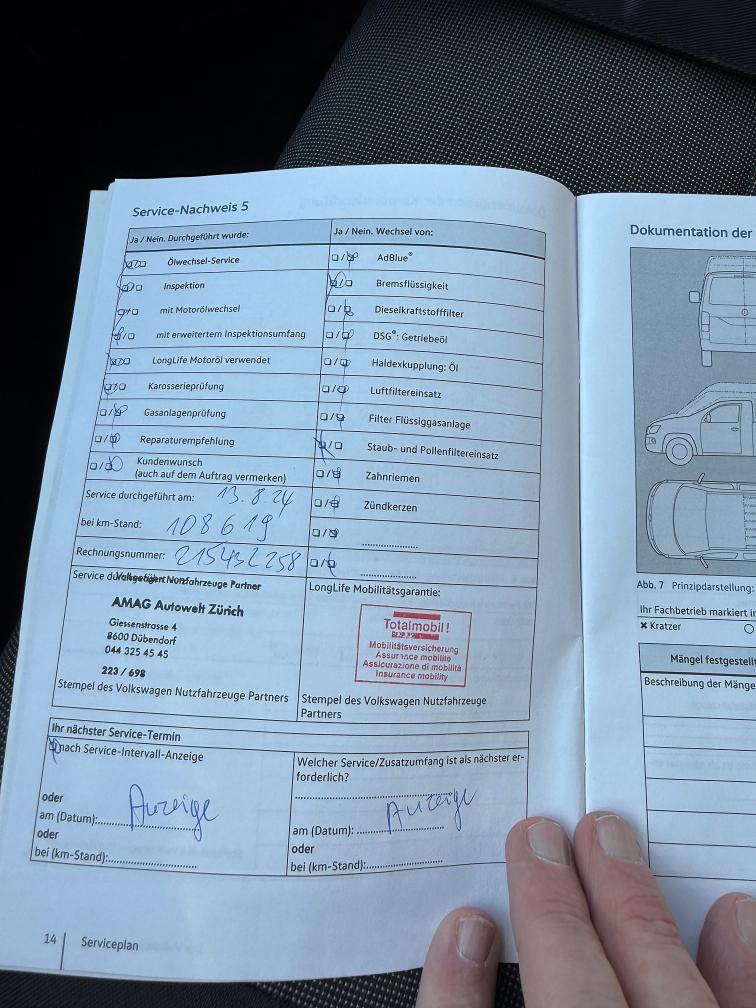 Service-Nachweis 5
Ja / Nein. Durchgeführt wurde:
Ölwechsel-Service
Inspektion
mit Motorölwechsel
mit erweitertem Inspektionsumfang
LongLife Motoröl verwendet
Karosserieprüfung
Gasanlagenprüfung
Reparaturempfehlung
Kundenwunsch
(auch auf dem Auftrag vermerken)
Ja / Nein. Wechsel von:
AdBlue®
Bremsflüssigkeit
Dieselkraftstofffilter
DSG®: Getriebeöl
Haldexkupplung: Öl
Luftfiltereinsatz
Filter Flüssiggasanlage
Staub- und Pollenfiltereinsatz
Zahnriemen
Zündkerzen
Service durchgeführt am: 13.8.24
bei km-Stand: 108619
Rechnungsnummer: 215432258
Volkswagen Nutzfahrzeuge Partner
AMAG Autowelt Zürich
Giessenstrasse 4
8600 Dübendorf
044 325 45 45
223 / 698
Stempel des Volkswagen Nutzfahrzeuge Partners
LongLife Mobilitätsgarantie:
Totalmobil!
Mobilitätsversicherung
Assurance mobilité
Assicurazione di mobilità
Insurance mobility
Stempel des Volkswagen Nutzfahrzeuge
Partners
Ihr nächster Service-Termin
nach Service-Intervall-Anzeige
oder
Anzeige
am (Datum):
oder
bei (km-Stand):
Welcher Service/Zusatzumfang ist als nächster er-
forderlich?
Anzeige
am (Datum):
oder
bei (km-Stand):
14 Serviceplan
Dokumentation der
Abb. 7 Prinzipdarstellung:
Ihr Fachbetrieb markiert
× Kratzer
Mängel festgestellt
Beschreibung der Mänge